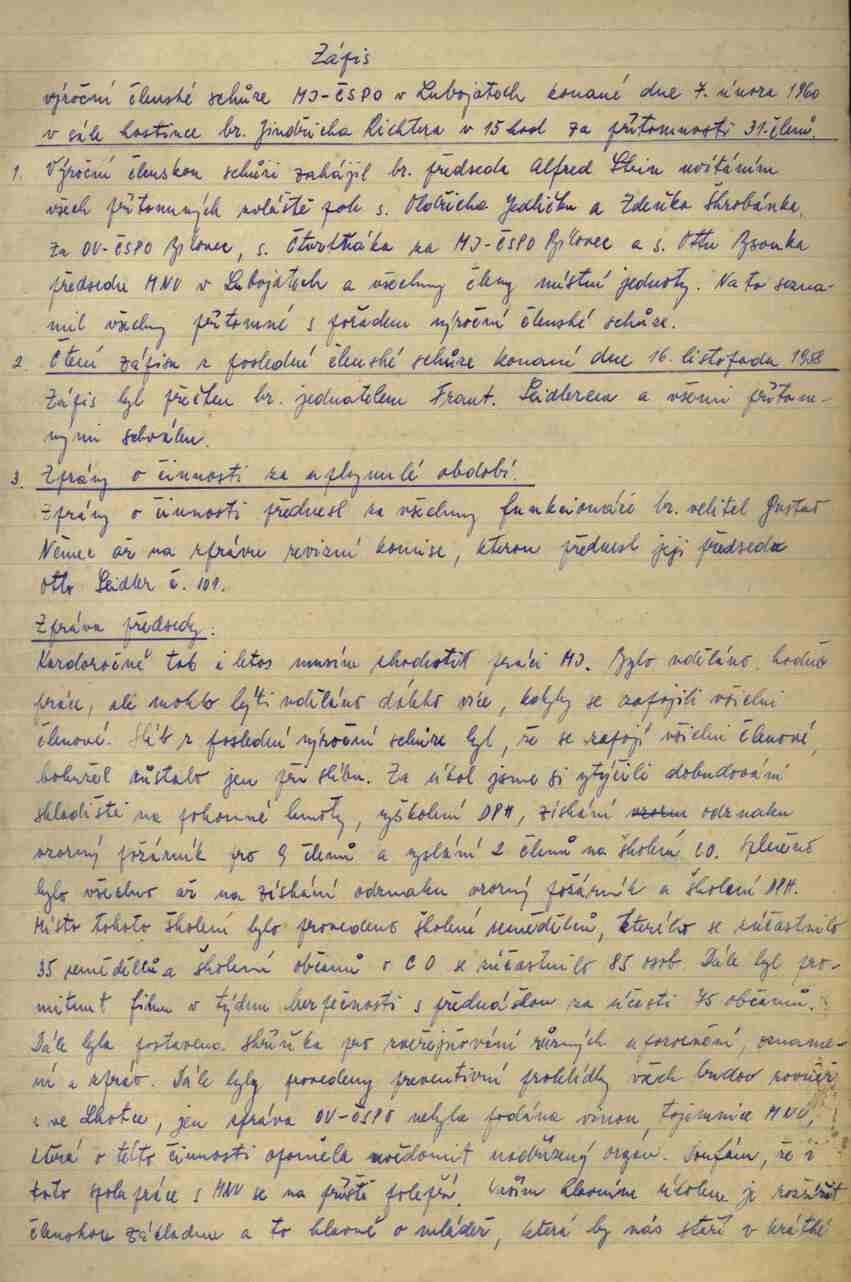 Zápis
výroční členské schůze MJ-ČSPO v Lubojatech konané dne 7. února 1960
v sále hostince br. Jindřicha Richtera v 15 hod za přítomnosti 31 členů.
1. Výroční členskou schůzi zahájil br. předseda Alfred Stein uvítáním
všech přítomných zvláště pak s. Oldřicha Jedličku a Zdeňka Škrobánka,
za OV-ČSPO Bílovec, s. Čtvrtňáka za MJ-ČSPO Bílovec a s. Ottu
předsedu MNV v Lubojatech a všechny členy místní jednoty. Na to sezná-
mil všechny přítomné s pořadem výroční členské schůze.
2. Čtení zápisu z poslední členské schůze konané dne 16. listopadu 1958
Zápis byl přečten br. jednatelem Frant. Seidlerem a všemi přítom-
nými schválen.
3. Zprávy o činnosti za uplynulé období.
Zprávy o činnosti přednesl za všechny funkcionáře br. velitel Gustav
Němec až na zprávu revizní komise, kterou přednesl její předseda
Otto Seidler č. 101.
Zpráva předsedy:
Každoročně tak i letos musím zhodnotit práci MJ. Bylo uděláno hodně
práce, ale mohlo býti uděláno daleko více, kdyby se zapojili všichni
členové. Slib z poslední výroční schůze byl, že se zapojí všichni členové,
bohužel zůstalo jen při slibu. Za úkol jsme si vytýčili dobudování
skladiště na pohonné hmoty, vyškolení DPH, získání vzorn odznaku
vzorný požárník pro 9 členů a vyslání 2 členů na školení CO. Splněno
bylo všechno až na získání odznaku vzorný požárník a školení DPH.
Místo tohoto školení bylo provedeno školení zemědělců, kterého se zúčastnilo
35 zemědělců a školení občanů o CO se zúčastnilo 85 osob. Dále byl pro-
mítnut film v týdnu bezpečnosti s přednáškou za účasti 75 občanů.
Dále byla postavena skříňka pro zveřejňování různých upozornění, oznáme-
ní a zpráv. Dále byly provedeny preventivní prohlídky všech budov rovněž
i ve Lhotce, jen zpráva OV-ČSPO nebyla podána vinou tajemnice MNV,
která o této činnosti opoměla uvědomit nadřízený orgán. Doufám, že i
tato spolupráce s MNV se na příště polepší. hlavním úkolem je rozšířit
členskou základnu a to hlavně o mládež, která by nás starší v krátké